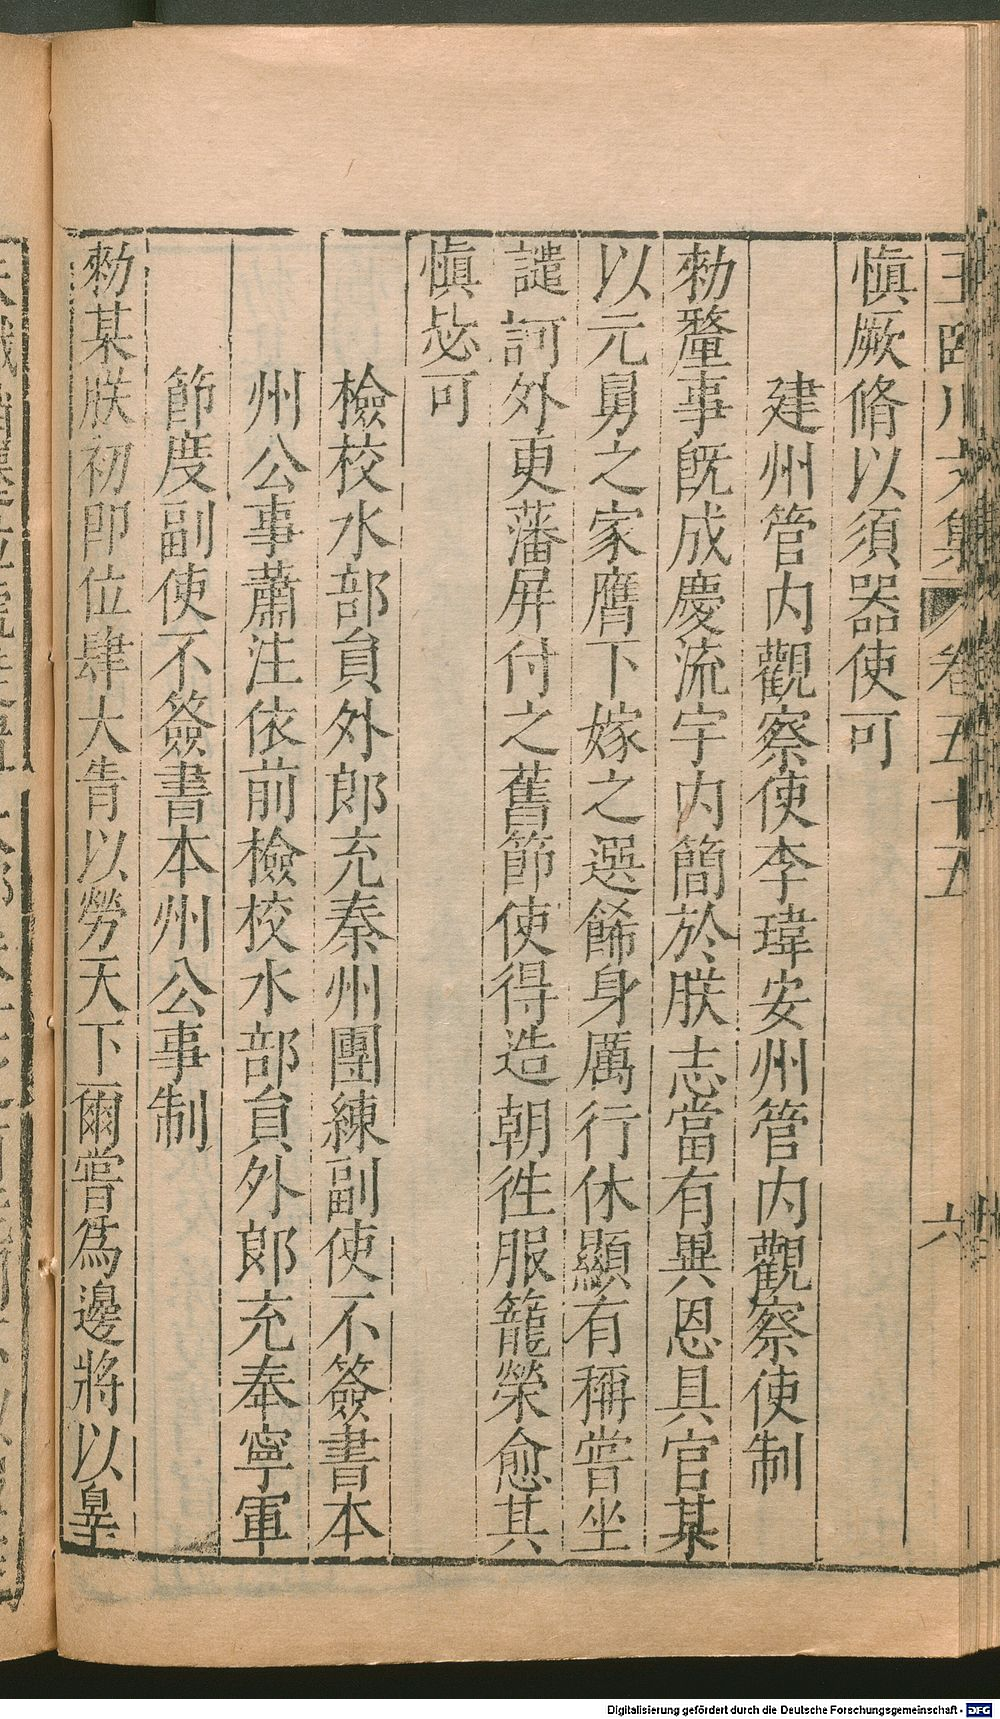 王臨川文集 卷五十五 六
愼厥脩以須器使可
建州管内觀察使李瑋安州管内觀察使制
勑釐事旣成慶流宇内簡於朕志當有異恩具官某
以元舅之家膺下嫁之選餙身厲行休顯有稱嘗坐
譴訶外更藩屏付之舊節使得造朝徃服寵榮愈其
愼毖可
檢校水部貟外郎充秦州團練副使不簽書本
州公事蕭注依前檢校水部貟外郎充奉寧軍
節度副使不簽書本州公事制
勑某朕初即位肆大眚以勞天下爾嘗爲邊將以辠
Digitalisierung gefördert durch die Deutsche Forschungsgemeinschaft - DFG